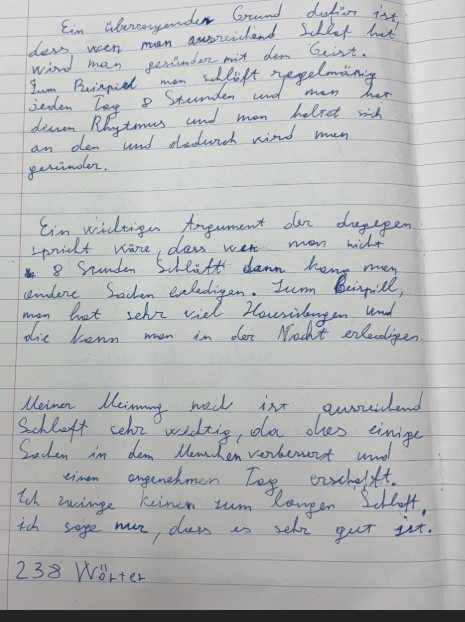 Ein überzeugenden Grund dafür ist,
dass wen man ausreichend Schlaf hat
wird man gesünder mit den Geist.
Zum Beispiel man schläft regelmänig
jeden Tag 8 Stunden und man hat
diesen Rhytmus und man haltet sich
an den und dadurch wird man
gesünder.
Ein wichtiges Argument der dagegen
spricht wäre, dass wen man nicht
8 Stunden Schläft dann kann man
andere Sachen erledigen. Zum Beispiell,
man hat sehr viel Hausübungen und
die kann man in der Nacht erledigen.
Meiner Meinung nach ist ausreichend
Schlaft sehr wichtig, da dies einige
Sachen in dem Menschen verbessert und
einen angenehmen Tag erschafft.
Ich zwinge keinen zum langen Schlaft,
ich sage nur, dass es sehr gut ist.
238 Wörter